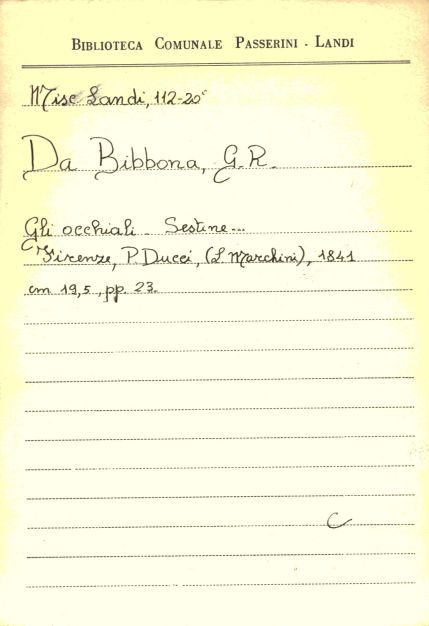 BIBLIOTECA COMUNALE PASSERINI - LANDI
Misc Landi, 112-20
Da Bibbona, G.R.
Gli occhiali - Sestine...
Firenze, P. Ducci, (L. Marchini), 1841
cm 19,5, pp. 23.
C